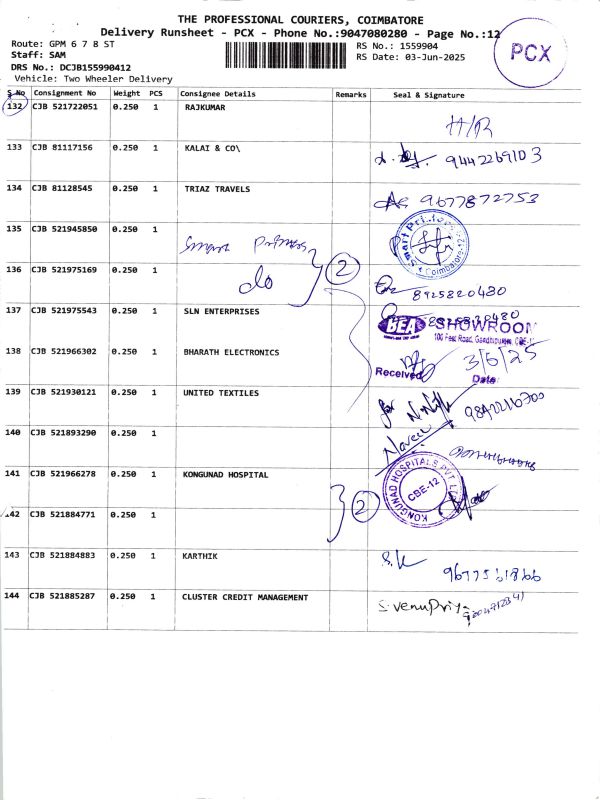 THE PROFESSIONAL COURIERS, COIMBATORE
Delivery Runsheet - PCX - Phone No.:9047080280 - Page No.:12
PCX
Route: GPM 6 7 8 ST
Staff: SAM
DRS No.: DCJB155990412
Vehicle: Two Wheeler Delivery
RS No.: 1559904
RS Date: 03-Jun-2025
S No Consignment No Weight PCS Consignee Details Remarks Seal & Signature
132 CJB 521722051 0.250 1 RAJKUMAR
H/R
133 CJB 81117156 0.250 1 KALAI & CO\ 9442269103
134 CJB 81128545 0.250 1 TRIAZ TRAVELS 9677872753
135 CJB 521945850 0.250 1 Smart Printers
Coimbatore-12
2
136 CJB 521975169 0.250 1 do 8925820480
137 CJB 521975543 0.250 1 SLN ENTERPRISES 8925820480
BEA SHOWROOM
100 Feet Road, Gandhipuram, CBE-12
138 CJB 521966302 0.250 1 BHARATH ELECTRONICS 3/6/25
Received Date
139 CJB 521930121 0.250 1 UNITED TEXTILES
Naveen
140 CJB 521893290 0.250 1
141 CJB 521966278 0.250 1 KONGUNAD HOSPITAL
KONGUNAD HOSPITALS PVT LTD
CBE-12
2
142 CJB 521884771 0.250 1
143 CJB 521884883 0.250 1 KARTHIK S.K
144 CJB 521885287 0.250 1 CLUSTER CREDIT MANAGEMENT S.venuPriya